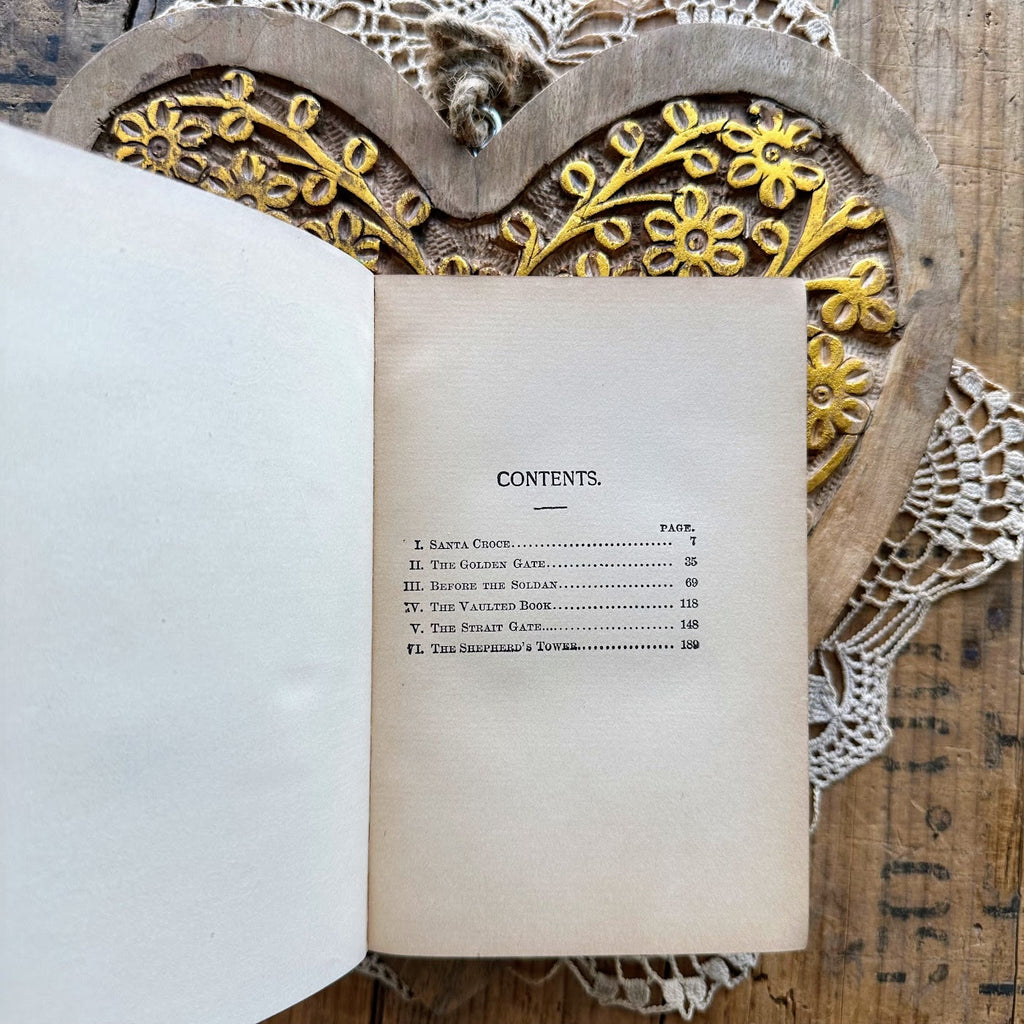 CONTENTS.
PAGE.
I. SANTA CROCE............................ 7
II. THE GOLDEN GATE....................... 35
III. BEFORE THE SOLDAN..................... 69
IV. THE VAULTED BOOK...................... 118
V. THE STRAIT GATE....................... 148
VI. THE SHEPHERD'S TOWER.................. 189